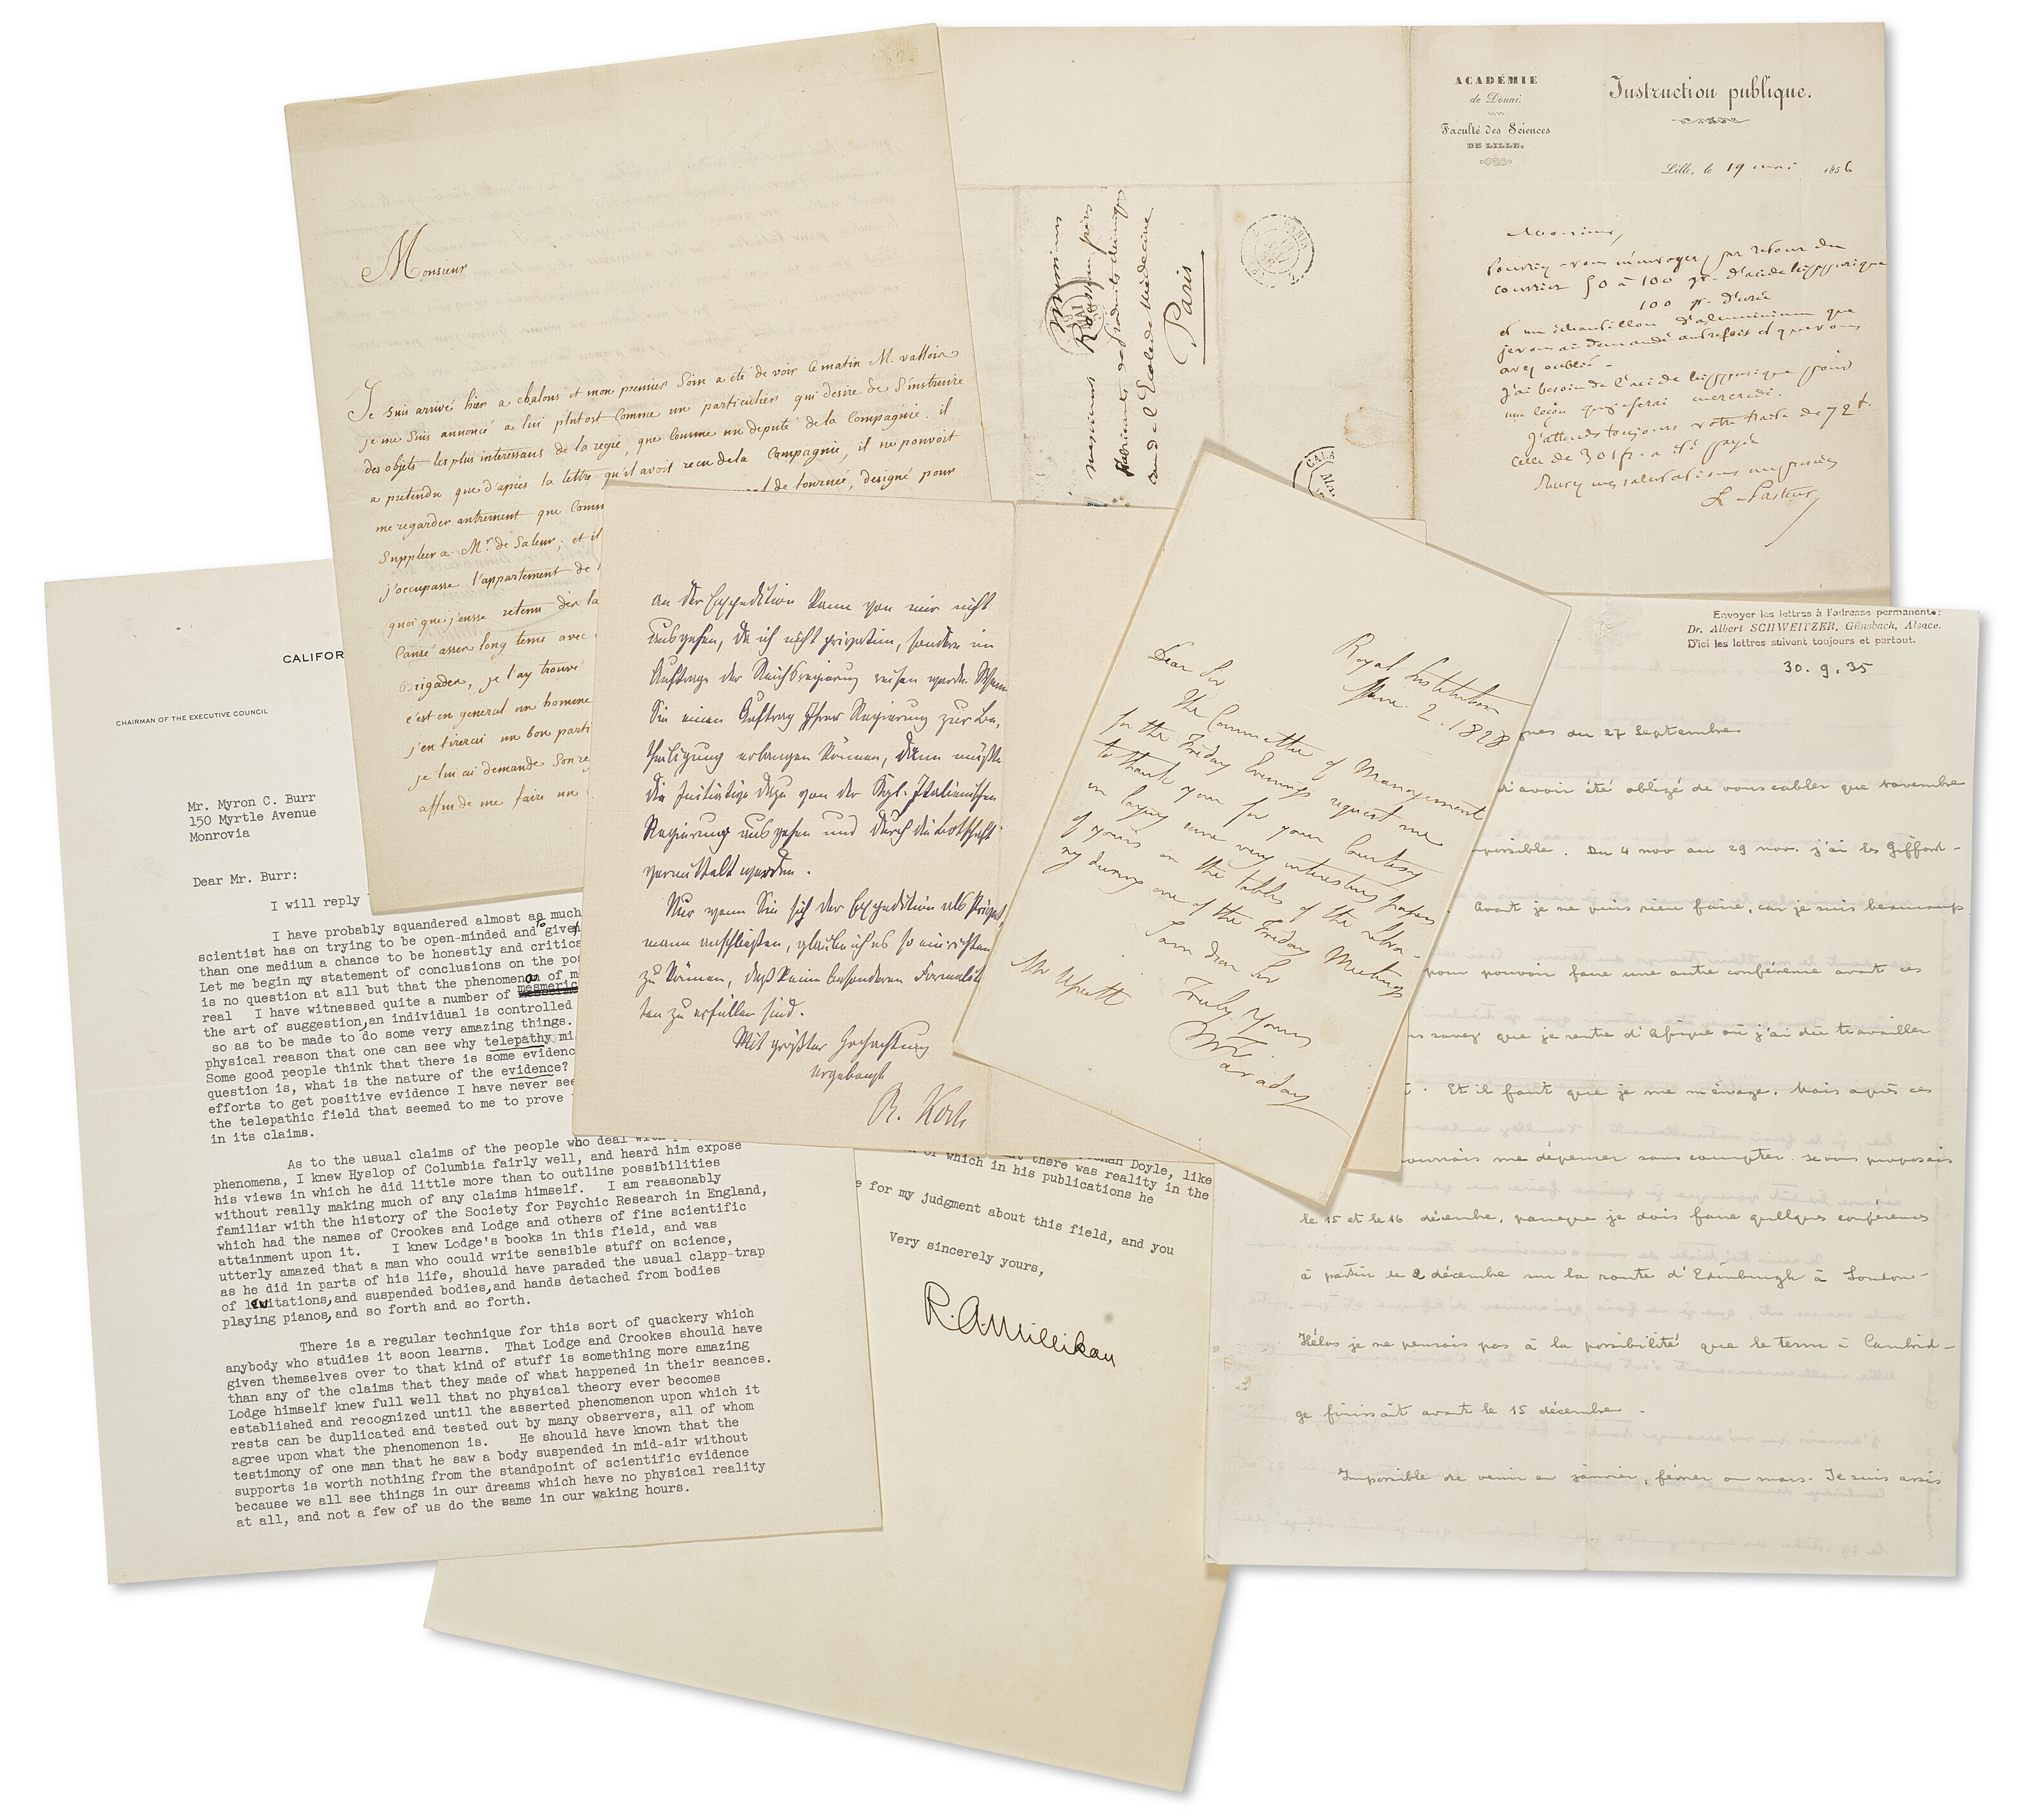 Monsieur
Je suis arrivé hier a chalons et mon premier soin a été de voir ce matin M. vallois
je me suis annoncé a lui plutost comme un particulier qui desire de s'instruire
des objets les plus interessans de la regie, que comme un deputé de la Compagnie. il
a pretendu que d'après la lettre qu'il avoit recu de la Compagnie, il ne pouvoit
me regarder autrement que Comm
de tournée, designé pour
Suppleer a Mr. de Saleur; et il
j'occupasse l'appartement de
quoi que j'eusse retenu der la
Causé assez long tems avec
brigades, je l'ay trouvé
c'est en general un homme
j'en tirerai un bon parti
je lui ai demandé Son re
affin de me faire un
Messieurs
Rousseau frères
fabricants de produits chimiques
rue de l'Ecole de Médecine
Paris
ACADÉMIE
de Douai.
Faculté des Sciences
DE LILLE.
Instruction publique.
Lille, le 19 mai 1856
Monsieur,
Pourriez-vous m'envoyer, par retour du
courrier 50 à 100 gr. d'acide hippurique
100 gr. d'urée
et un échantillon d'aluminium que
je vous ai demandé autrefois et que vous
avez oublié.
J'ai besoin de l'acide hippurique pour
une leçon que je ferai mercredi.
J'attends toujours votre traite de 72 f.
Celle de 301 fr. a été payée
L. Pasteur
CALIFOR
CHAIRMAN OF THE EXECUTIVE COUNCIL
Mr. Myron C. Burr
150 Myrtle Avenue
Monrovia
Dear Mr. Burr:
I will reply
I have probably squandered almost as much
scientist has on trying to be open-minded and to give
than one medium a chance to be honestly and critica
Let me begin my statement of conclusions on the po
is no question at all but that the phenomena of m
real I have witnessed quite a number of mesmeric
the art of suggestion, an individual is controlled
so as to be made to do some very amazing things.
physical reason that one can see why telepathy mi
Some good people think that there is some evidenc
question is, what is the nature of the evidence?
efforts to get positive evidence I have never see
the telepathic field that seemed to me to prove
in its claims.
As to the usual claims of the people who deal with
phenomena, I knew Hyslop of Columbia fairly well, and heard him expose
his views in which he did little more than to outline possibilities
without really making much of any claims himself. I am reasonably
familiar with the history of the Society for Psychic Research in England,
which had the names of Crookes and Lodge and others of fine scientific
attainment upon it. I knew Lodge's books in this field, and was
utterly amazed that a man who could write sensible stuff on science,
as he did in parts of his life, should have paraded the usual clapp-trap
of levitations, and suspended bodies, and hands detached from bodies
playing pianos, and so forth and so forth.
There is a regular technique for this sort of quackery which
anybody who studies it soon learns. That Lodge and Crookes should have
given themselves over to that kind of stuff is something more amazing
than any of the claims that they made of what happened in their seances.
Lodge himself knew full well that no physical theory ever becomes
established and recognized until the asserted phenomenon upon which it
rests can be duplicated and tested out by many observers, all of whom
agree upon what the phenomenon is. He should have known that the
testimony of one man that he saw a body suspended in mid-air without
supports is worth nothing from the standpoint of scientific evidence
because we all see things in our dreams which have no physical reality
at all, and not a few of us do the same in our waking hours.
an der Expedition kann von mir nicht
ausgehen, da ich nicht privatim, sondern im
Auftrage der Reichsregierung reisen werde. Wenn
Sie einen Auftrag Ihrer Regierung zur Be-
theiligung erlangen können, dann müßte
die Initiative dazu von der Kgl. Italienischen
Regierung ausgehen und durch die Botschaft
vermittelt werden.
Nur wenn Sie sich der Expedition als Privat-
mann anschließen, glaube ich es so einrichten
zu können, daß keine besonderen Formalitä-
ten zu erfüllen sind.
Mit größter Hochachtung
ergebenst
R. Koch
Royal Institution
2. 1828
Dear Sir
The Committee of Management
for the Friday Evenings request me
to thank you for your courtesy
in laying some very interesting papers
of yours on the tables of the libra-
ry during one of the Friday Meetings
I am dear Sir
Truly Yours
M. Faraday
Doyle, like
there was reality in the
of which in his publications he
e for my judgment about this field, and you
Very sincerely yours,
R.A. Millikan
Envoyer les lettres à l'adresse permanente:
Dr. Albert SCHWEITZER, Günsbach, Alsace.
D'ici les lettres suivent toujours et partout.
30.9.35
gnes du 27 Septembre
d'avoir été obligé de vous cabler que novembre
impossible. Du 4 nov au 29 nov. j'ai les Gifford-
Avant je ne puis rien faire, car je suis beaucoup
pour pouvoir faire une autre conférence avant ces
savez que je rentre d'Afrique où j'ai du travailler
Et il faut que je me ménage. Mais après ces
pourrais me dépenser sans compter. Je vous proposais
le 15 et le 16 décembre, parceque je dois faire quelques conférences
à partir de 2 décembre sur la route d'Edinburgh à London.
Hélas je ne pensais pas à la possibilité que le term à Cambrid-
ge finissait avant le 15 décembre.
Impossible de venir en janvier, février ou mars. Je suis assis